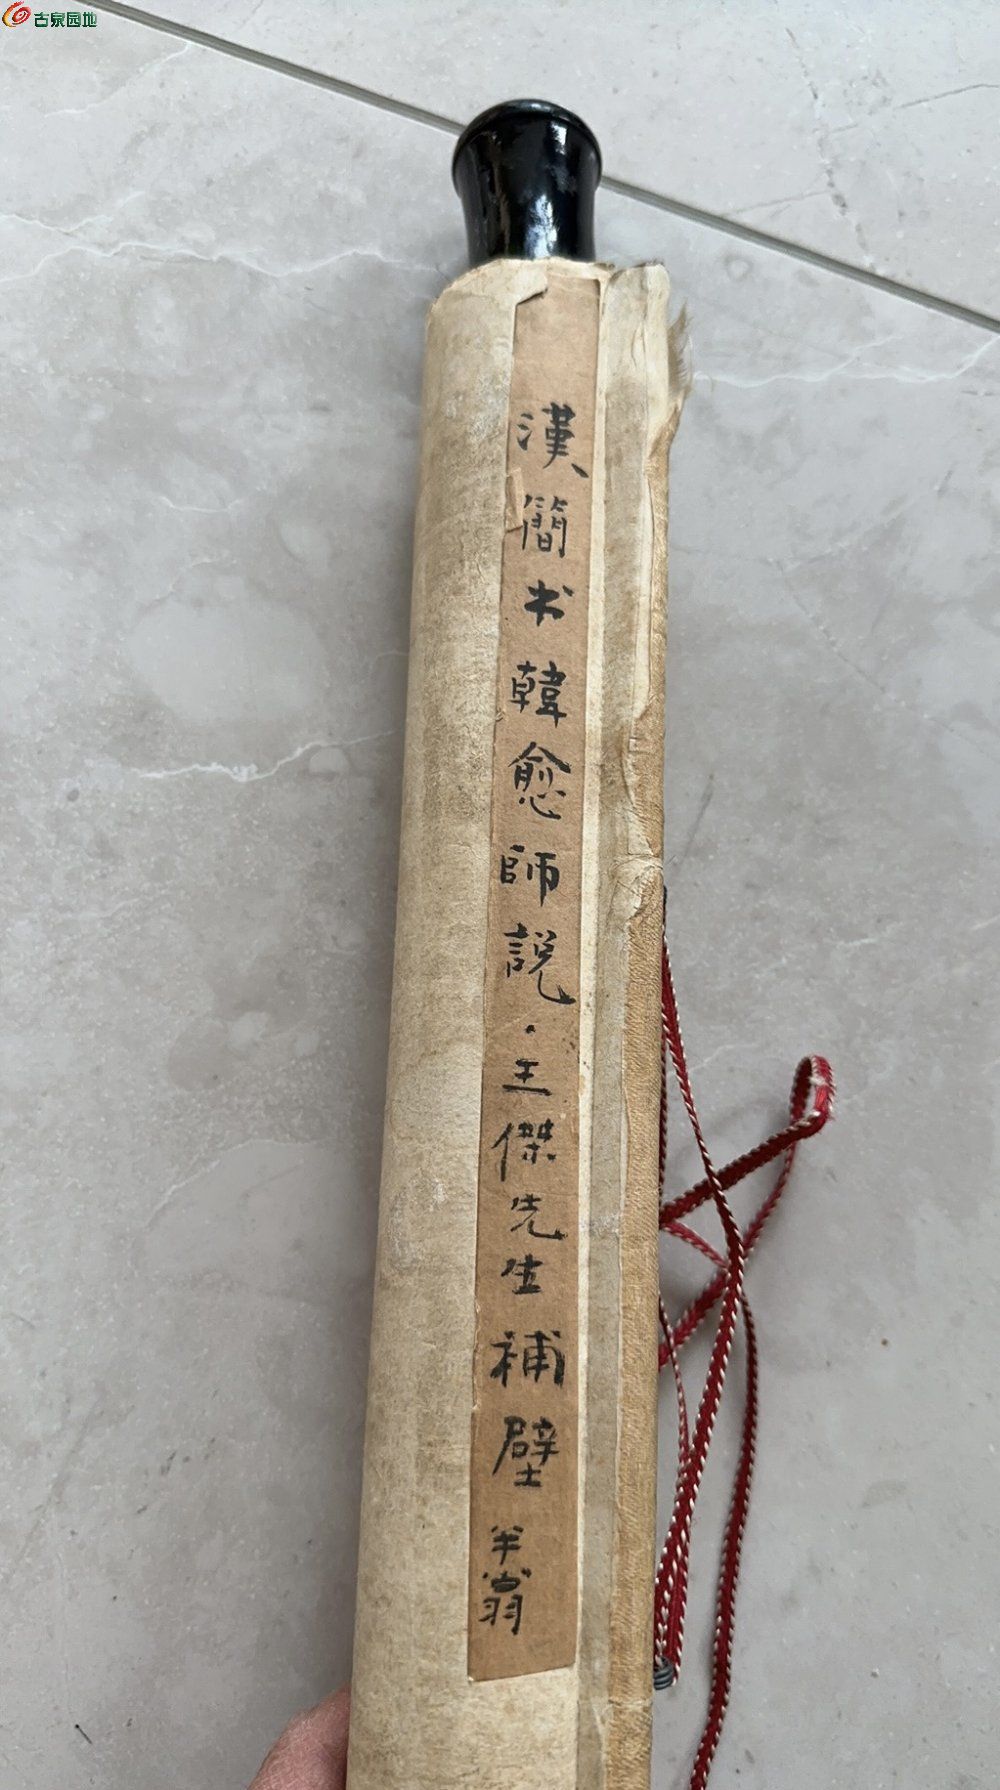 古泉园地
漢簡书韓愈師説·王傑先生補壁 半翁